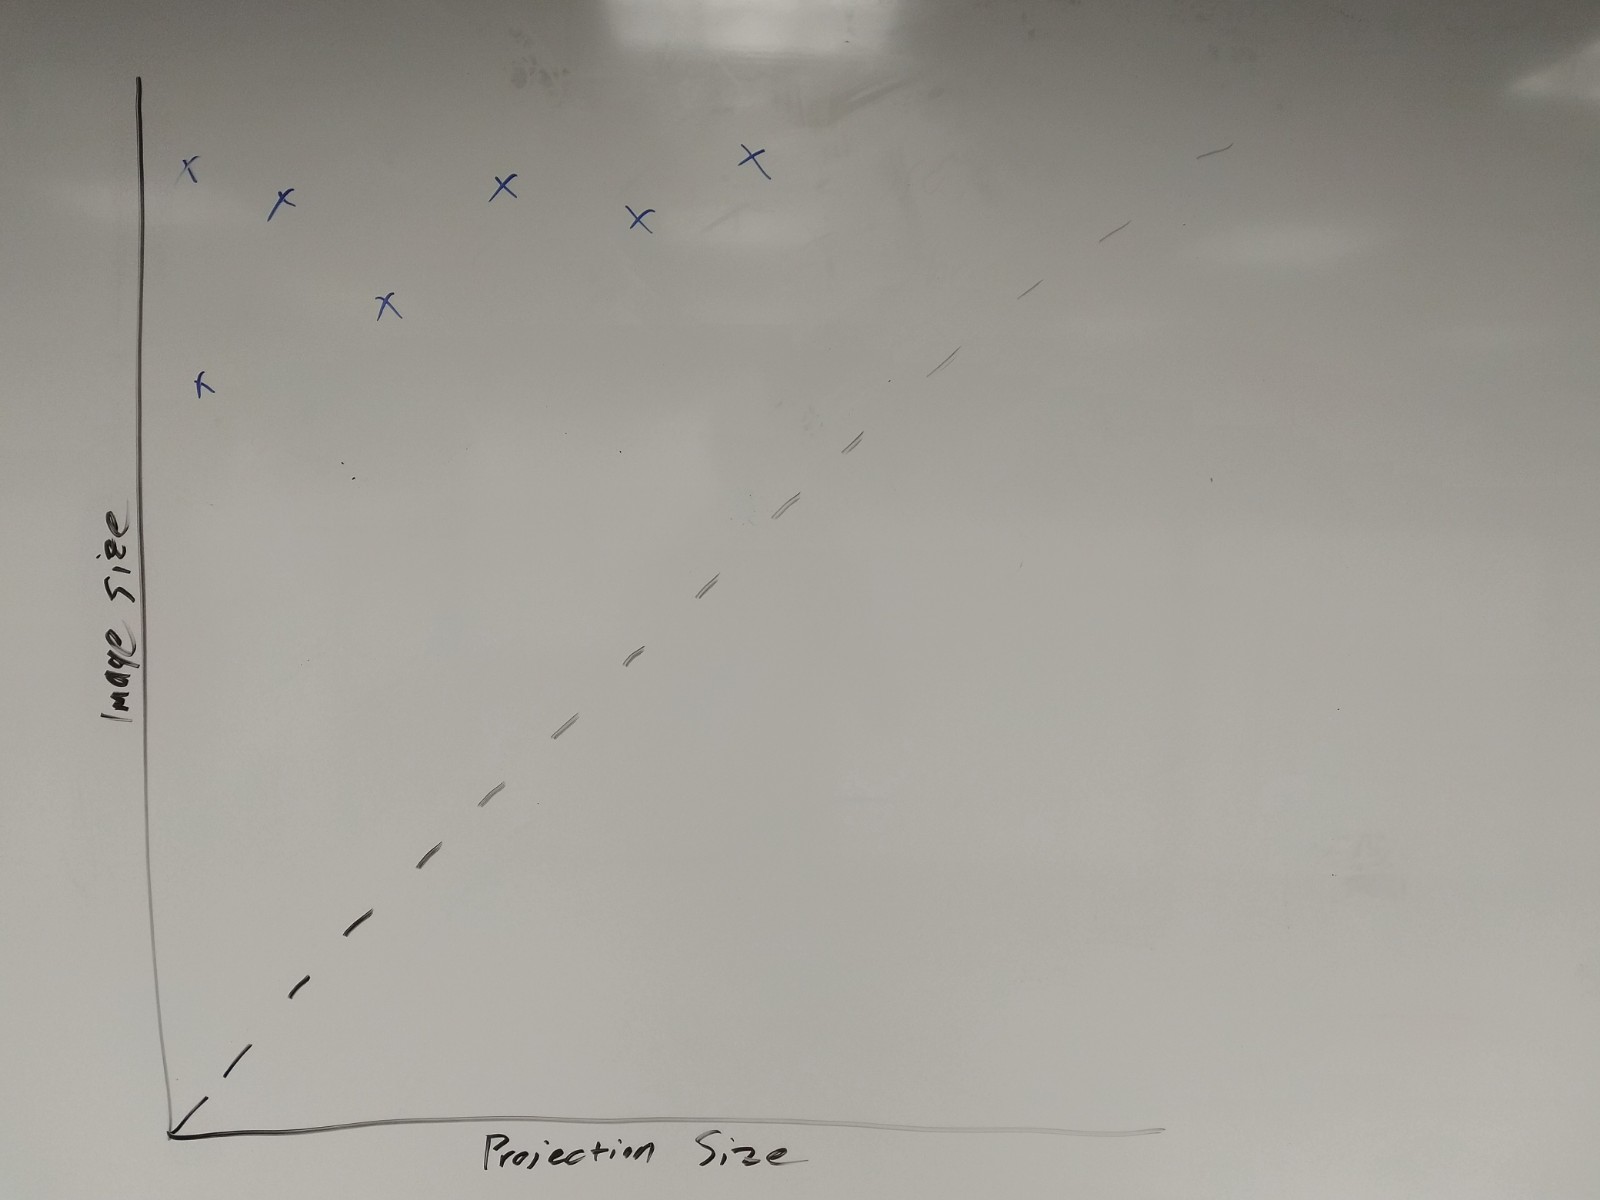 Image Size
Projection Size